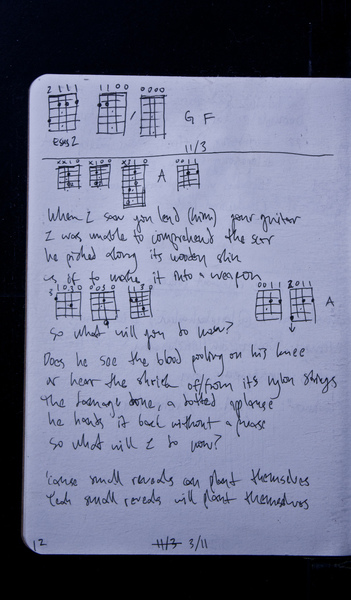 2 1 1 1   1 1 0 0   0 0 0 0
G F
esus2
11/3
x x 1 0   x 1 0 0   x 2 1 0   A   0 0 1 1
When I saw you lend (him) your guitar
I was unable to comprehend the scar
he picked along its wooden skin
as if to make it into a weapon
5 1 0 3 0   0 0 3 0   0 0 1 1   2 0 1 1   A
so what will you do now?
Does he see the blood pooling on his knee
or hear the shriek of/from its nylon strings
the damage done, a dotted applause
he hands it back without a pause
so what will I do now?
'cause small reveals can plant themselves
Yeah small reveals will plant themselves
12   11/3 3/11